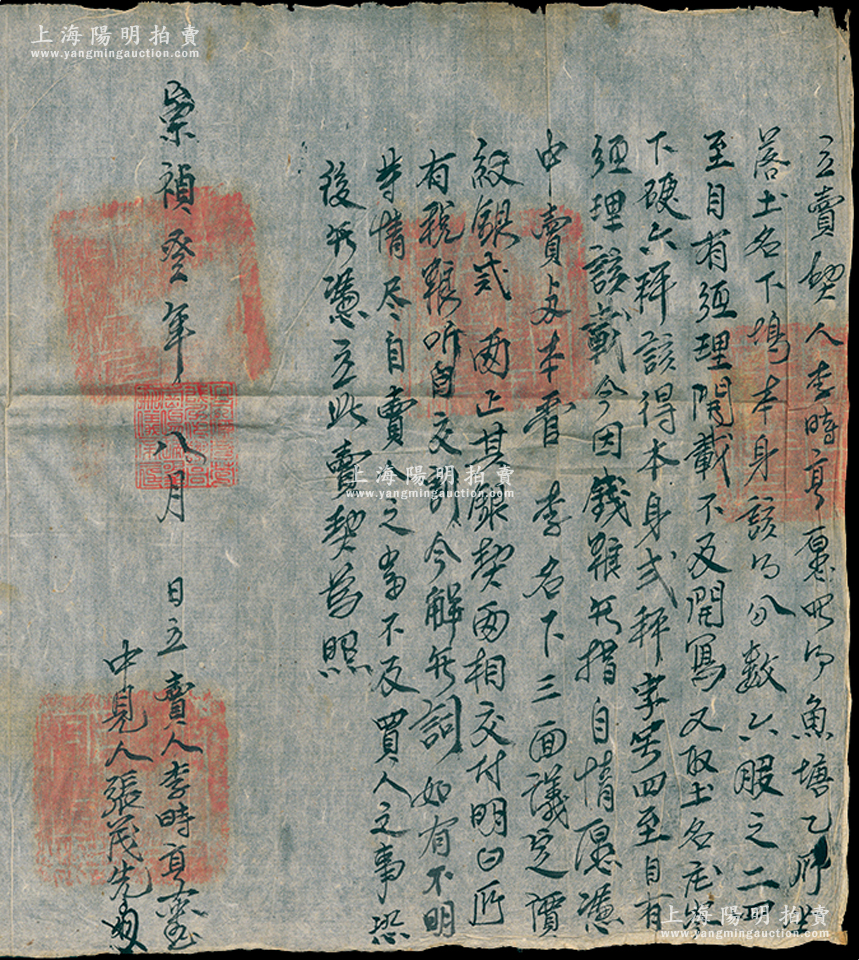 立賣契人李時亨原買得魚塘乙所坐
落土名下塢本身該得分數六股之二四
至自有經理開載不及開寫又取土名
下硬六秤該得本身弍秤字号四至自有
經理該載今因錢難无措自情愿憑
中賣与本管 李名下三面議定價
紋銀弍兩正其銀契兩相交付明白所
有稅粮听自交割今解无詞如有不明
等情尽自賣人之当不及買人之事恐
後无憑立此賣契為照
崇禎登年八月 日立賣人李時亨
中見人張茂先
上海陽明拍賣
www.yangmingauction.com
上海陽明拍賣
www.yangmingauction.com
上海陽明拍賣
www.yangmingauction.com